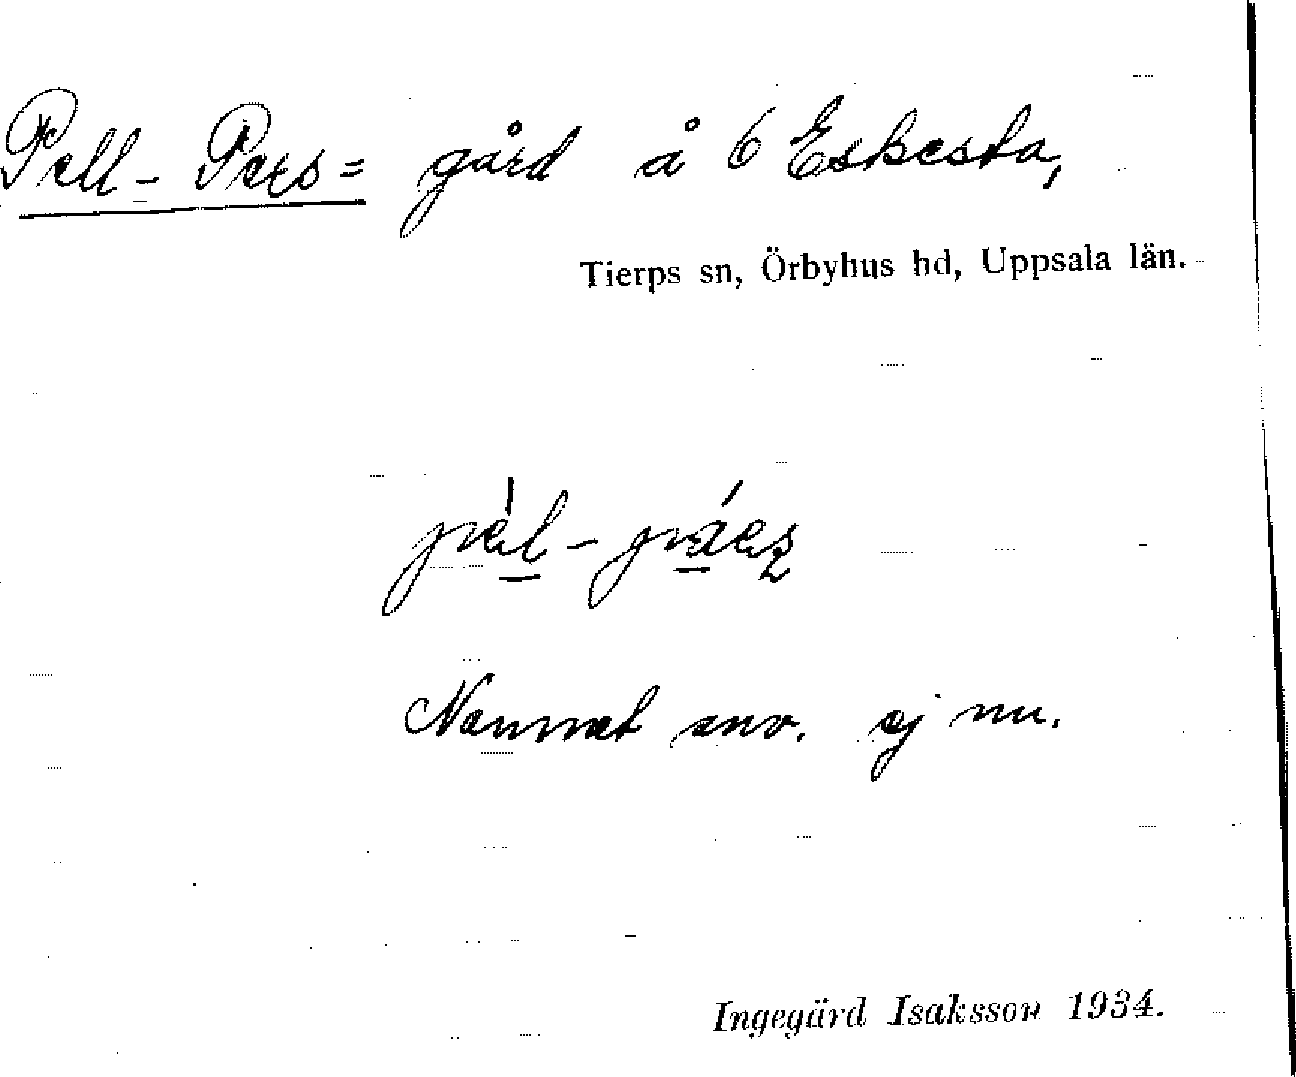 Pell-Pers= gård å 6 Eskesta,
Tierps sn, Örbyhus hd, Uppsala län.
Namnet anv. ej nu.
Ingegärd Isaksson 1934.